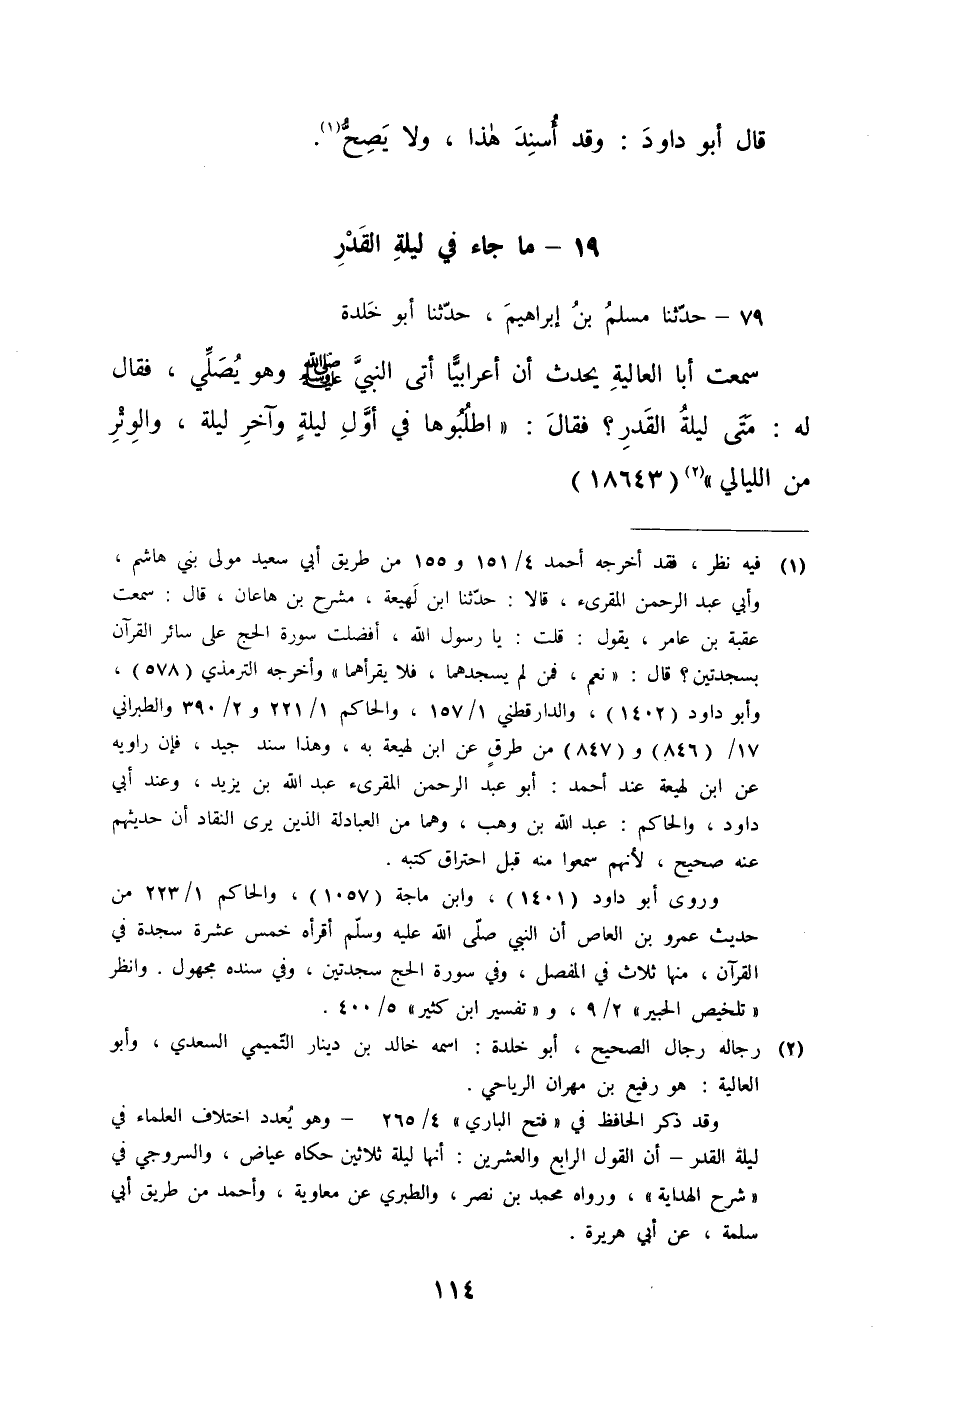 قال أبو داودَ : وقد أُسنِدَ هٰذا ، ولا يَصِحُّ(١) .
١٩ – ما جاء في ليلةِ القَدْرِ
٧٩ – حدّثنا مسلمُ بنُ إبراهيمَ ، حدّثنا أبو خَلدة
سمعت أبا العاليةِ يحدث أن أعرابيًّا أتى النبيَّ ﷺ وهو يُصَلِّي ، فقال
له : مَتَى ليلةُ القَدرِ؟ فقالَ : « اطلُبُوها في أوَّلِ ليلةٍ وآخرِ ليلة ، والوِتْرِ
من الليالي »(٢) ( ١٨٦٤٣ )
(١) فيه نظر ، فقد أخرجه أحمد ٤/ ١٥١ و ١٥٥ من طريق أبي سعيد مولى بني هاشم ،
وأبي عبد الرحمن المقرىء ، قالا : حدّثنا ابن لَهيعة ، مشرح بن هاعان ، قال : سمعت
عقبة بن عامر ، يقول : قلت : يا رسول الله ، أفضلت سورة الحج على سائر القرآن
بسجدتين؟ قال : « نعم ، فمن لم يسجدهما ، فلا يقرأهما » وأخرجه الترمذي ( ٥٧٨ ) ،
وأبو داود ( ١٤٠٢ ) ، والدارقطني ١/ ١٥٧ ، والحاكم ١/ ٢٢١ و ٢/ ٣٩٠ والطبراني
١٧/ ( ٨٤٦ ) و ( ٨٤٧ ) من طرقٍ عن ابن لهيعة به ، وهذا سند جيد ، فإن راويه
عن ابن لهيعة عند أحمد : أبو عبد الرحمن المقرىء عبد الله بن يزيد ، وعند أبي
داود ، والحاكم : عبد الله بن وهب ، وهما من العبادلة الذين يرى النقاد أن حديثهم
عنه صحيح ، لأنهم سمعوا منه قبل احتراق كتبه .
وروى أبو داود ( ١٤٠١ ) ، وابن ماجة ( ١٠٥٧ ) ، والحاكم ١/ ٢٢٣ من
حديث عمرو بن العاص أن النبي صلّى الله عليه وسلّم أقرأه خمس عشرة سجدة في
القرآن ، منها ثلاث في المفصل ، وفي سورة الحج سجدتين ، وفي سنده مجهول . وانظر
« تلخيص الحبير » ٢/ ٩ ، و « تفسير ابن كثير » ٥/ ٤٠٠ .
(٢) رجاله رجال الصحيح ، أبو خلدة : اسمه خالد بن دينار التّميمي السعدي ، وأبو
العالية : هو رفيع بن مهران الرياحي .
وقد ذكر الحافظ في « فتح الباري » ٤/ ٢٦٥ – وهو يُعدد اختلاف العلماء في
ليلة القدر – أن القول الرابع والعشرين : أنها ليلة ثلاثين حكاه عياض ، والسروجي في
« شرح الهداية » ، ورواه محمد بن نصر ، والطبري عن معاوية ، وأحمد من طريق أبي
سلمة ، عن أبي هريرة .
١١٤